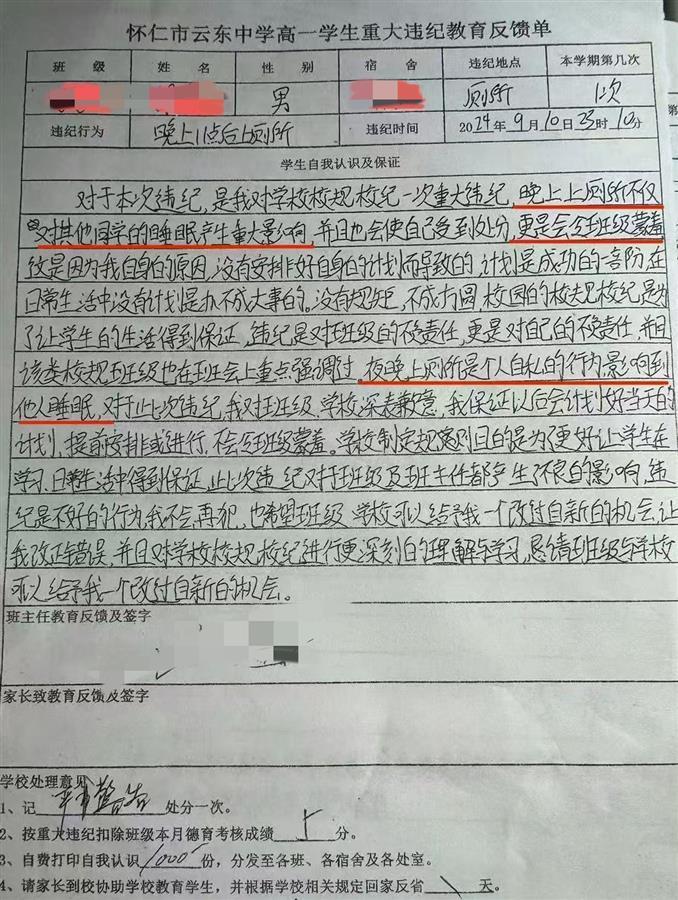 怀仁市云东中学高一学生重大违纪教育反馈单
班 级 姓 名 性 别 宿 舍 违纪地点 本学期第几次
男 厕所 1次
违纪行为 晚上11点后上厕所 违纪时间 2024年9月10日23时10分
学生自我认识及保证
对于本次违纪,是我对学校校规校纪一次重大违纪,晚上上厕所不仅
对其他同学的睡眠产生重大影响,并且也会使自己受到处分,更是会令班级蒙羞
这是因为我自身的原因,没有安排好自身的计划而导致的,计划是成功的一部阶,在
日常生活中没有计划是办不成大事的。没有规矩,不成方圆,校园的校规校纪,是为
了让学生的生活得到保证,违纪是对班级的不负责任,更是对自己的不负责任,并且
该类校规班级也在班会上重点强调过,夜晚上厕所是个人自私的行为,影响到
他人睡眠,对于此次违纪,我对班级、学校深表歉意,我保证以后会计划好当天的
计划,提前安排或进行,不会令班级蒙羞。学校制定规章制目的是为了更好让学生在
学习、日常生活中得到保证,此次违纪对于班级及班主任都产生了不良的影响,违
纪是不好的行为,我不会再犯,也希望班级、学校可以给予我一个改过自新的机会,让
我改正错误,并且对学校校规、校纪进行更深刻的理解与学习,恳请班级与学校
可以给予我一个改过自新的机会。
班主任教育反馈及签字
家长致教育反馈及签字
学校处理意见
1、记 严重警告 处分一次。
2、按重大违纪扣除班级本月德育考核成绩 分。
3、自费打印自我认识 1000 份,分发至各班、各宿舍及各处室。
4、请家长到校协助学校教育学生,并根据学校相关规定回家反省 \ 天。